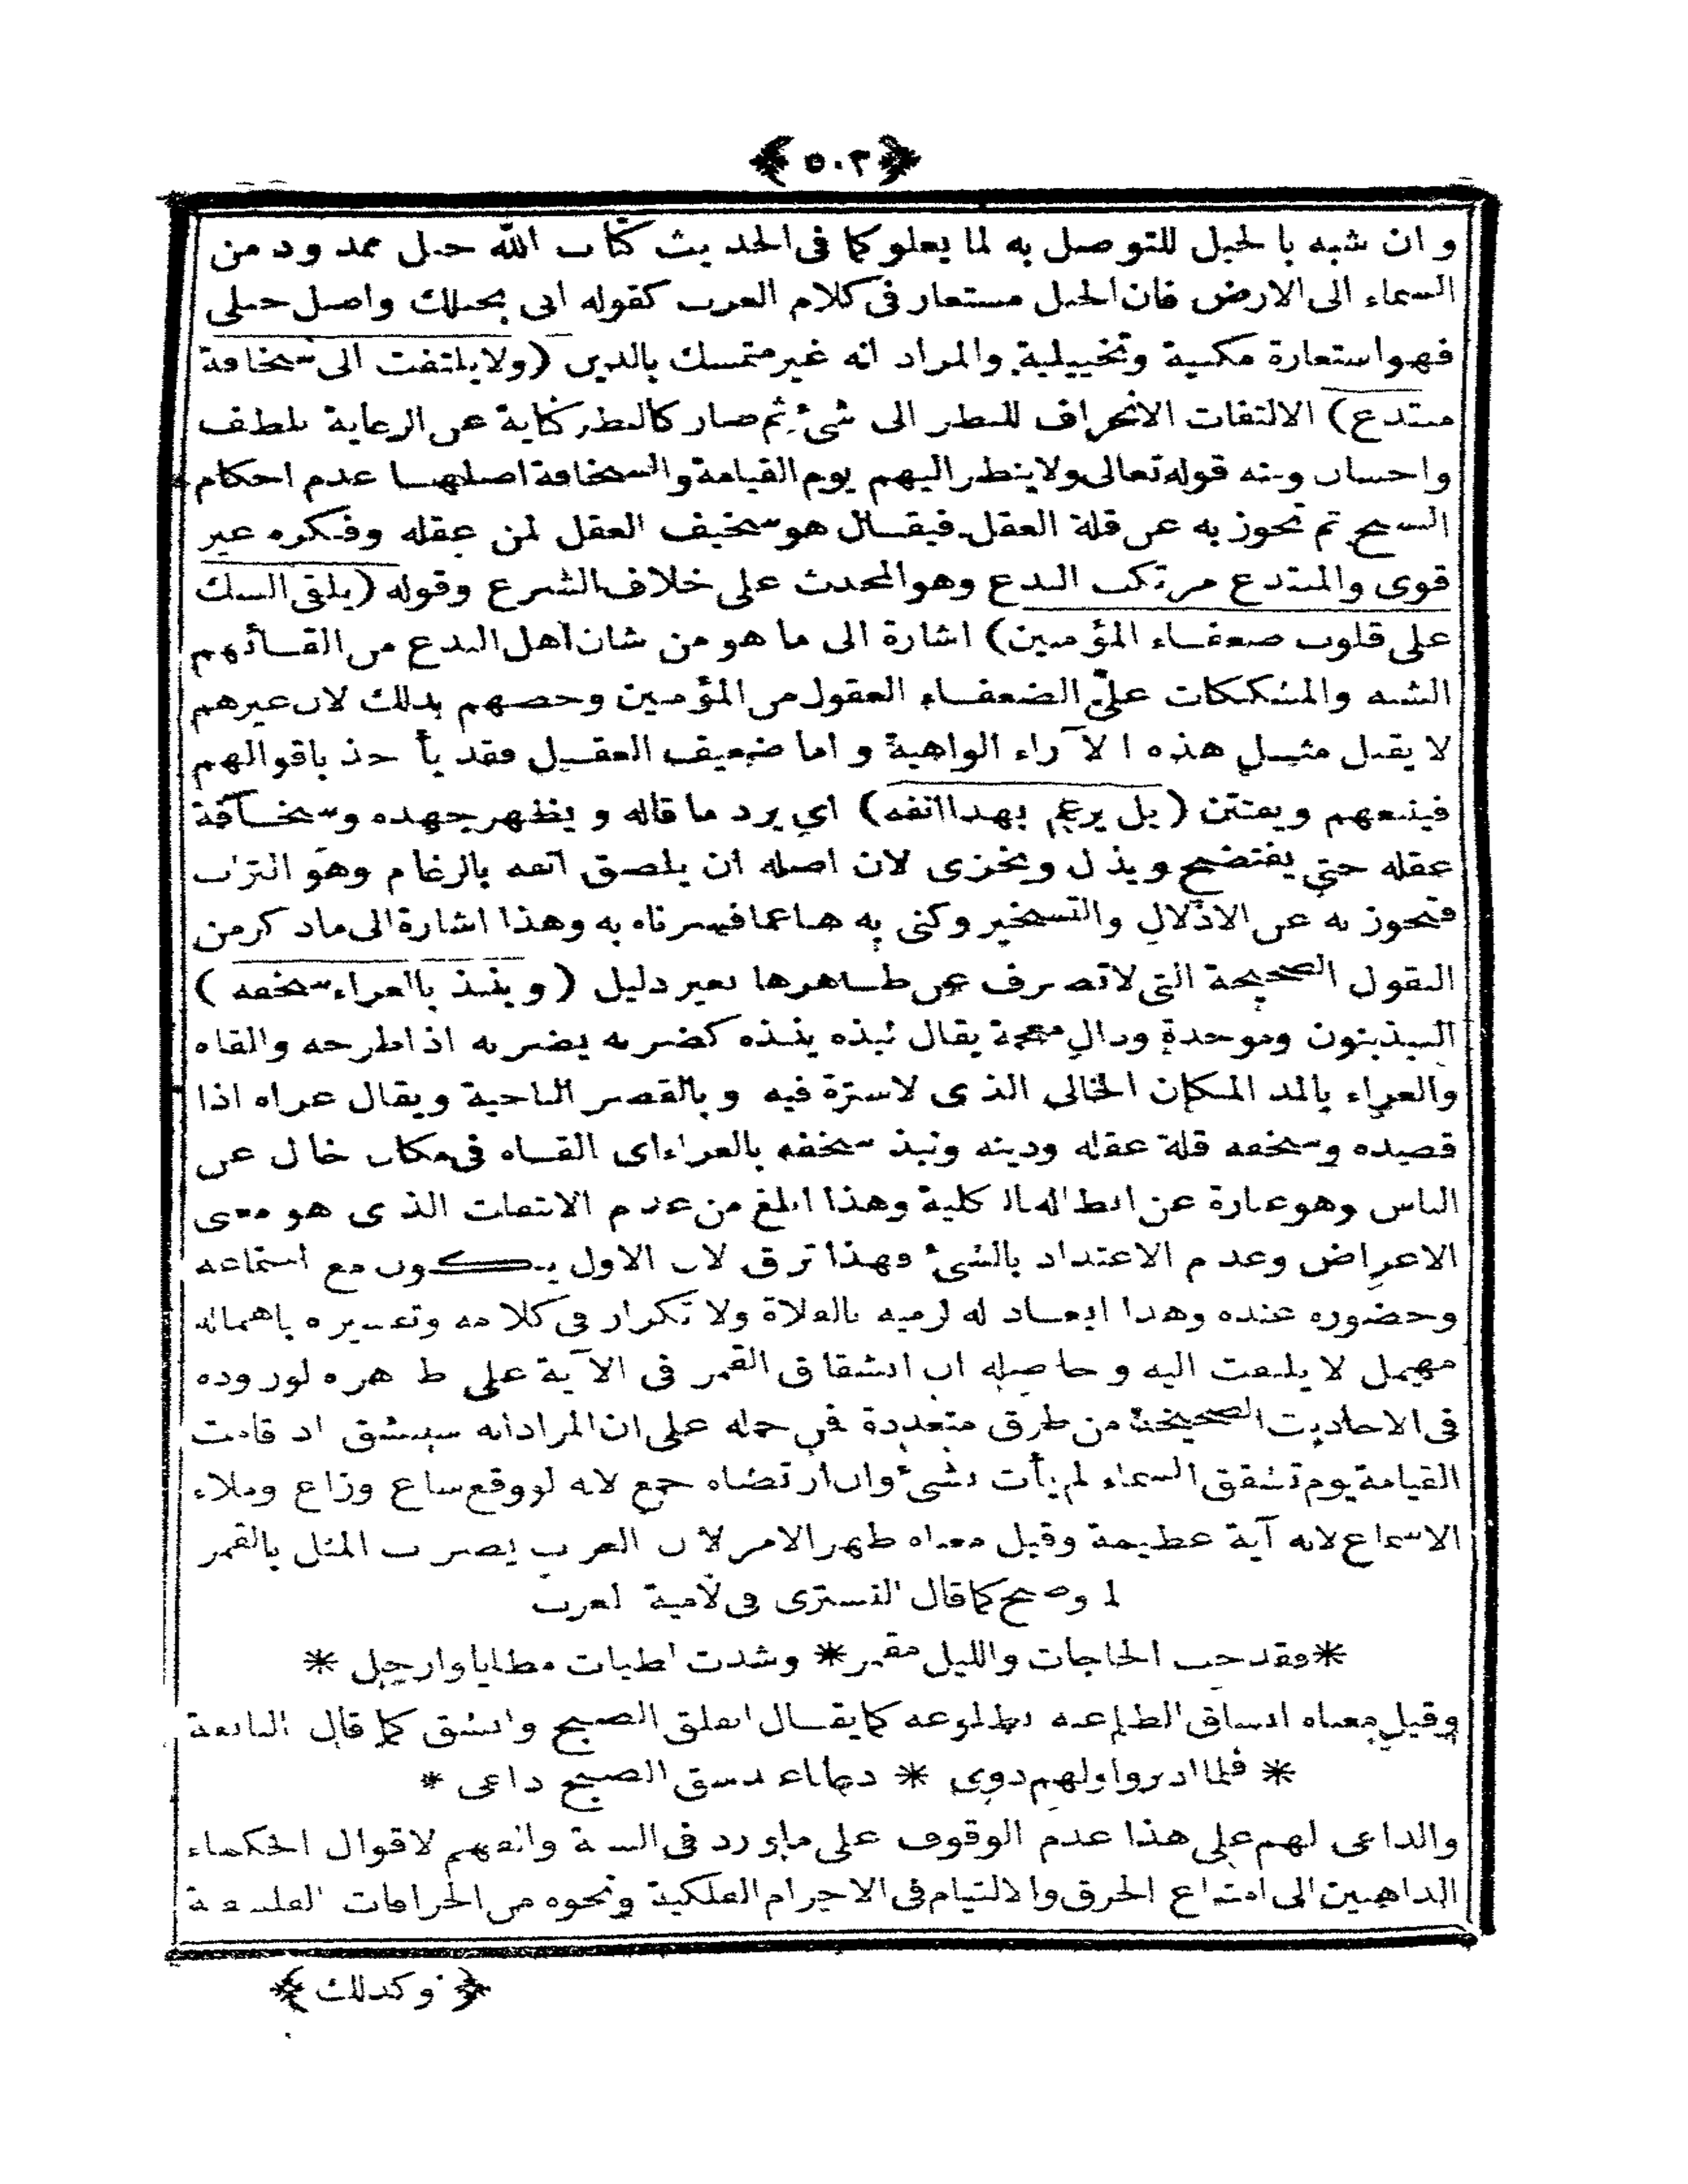 ﴿٥٠٢﴾
وان شبه بالحبل للتوصل به لما يعلو كما فى الحديث كتاب الله حبل ممدود من
السماء الى الارض فان الحبل مستعار فى كلام العرب كقوله انى بحبلك واصل حبلى
فهو استعارة مكنية وتخييلية والمراد انه غير متمسك بالدين (ولا يلتفت الى سخافة
مبتدع) الالتفات الانحراف للنظر الى شئ ثم صار كالنظر كناية عن الرعاية بلطف
واحسان ومنه قوله تعالى ولا ينظر اليهم يوم القيامة والسخافة اصلها عدم احكام
النسج ثم تجوز به عن قلة العقل فيقال هو سخيف العقل لمن عقله وفكره غير
قوى والمبتدع مرتكب البدع وهو المحدث على خلاف الشرع وقوله (يلقى الشك
على قلوب ضعفاء المؤمنين) اشارة الى ما هو من شان اهل البدع من القائهم
الشبه والمشككات على الضعفاء العقول من المؤمنين وخصهم بذلك لان غيرهم
لا يقبل مثل هذه الآراء الواهية واما ضعيف العقل فقد يأخذ باقوالهم
فيتبعهم ويفتتن (بل يرغم بهذا انفه) اى يرد ما قاله ويظهر جهده وسخافة
عقله حتى يفتضح ويذل ويخزى لان اصله ان يلصق انفه بالرغام وهو التراب
فتجوز به عن الاذلال والتسخير وكنى به هنا عما فسرناه به وهذا اشارة الى ما ذكر من
النقول الصحيحة التى لا تصرف عن ظاهرها بغير دليل (وينبذ بالعراء سخفه)
النبذ بنون وموحدة وذال معجمة يقال نبذه ينبذه كضربه يضربه اذا طرحه والقاه
والعراء بالمد المكان الخالى الذى لا سترة فيه وبالقصر الناحية ويقال عراه اذا
قصده وسخفه قلة عقله ودينه ونبذ سخفه بالعراء اى القاه فى مكان خال عن
الناس وهو عبارة عن ابطاله بالكلية وهذا ابلغ من عدم الالتفات الذى هو معنى
الاعراض وعدم الاعتداد بالشئ فهذا ترق لان الاول يكون مع استماعه
وحضوره عنده وهذا ابعاد له لرميه بالفلاة ولا تكرار فى كلامه وتفسيره باهماله
مهمل لا يلتفت اليه وحاصله ان انشقاق القمر فى الآية على ظاهره لوروده
فى الاحاديث الصحيحة من طرق متعددة فمن حمله على ان المراد انه سينشق اذ قامت
القيامة يوم تشقق السماء لم يأت بشئ وان ارتضاه جمع لانه لو وقع شاع وذاع وملاء
الاسماع لانه آية عظيمة وقيل معناه ظهر الامر لان العرب يضرب المثل بالقمر
لما وضح كما قال الشنفرى فى لامية العرب
*فقد حمت الحاجات والليل مقمر* وشدت لطيات مطايا وارحل *
وقيل معناه انشقاق الظلمة عنه بطلوعه كما يقال انفلق الصبح وانشق كما قال النابغة
* فلما ادبروا ولهم دوى * دعانا عند شق الصبح داعى *
والداعى لهم على هذا عدم الوقوف على ما ورد فى السنة والفهم لاقوال الحكماء
الذاهبين الى امتناع الخرق والالتيام فى الاجرام الفلكية ونحوه من الخرافات الفلسفية
﴿وكذلك﴾